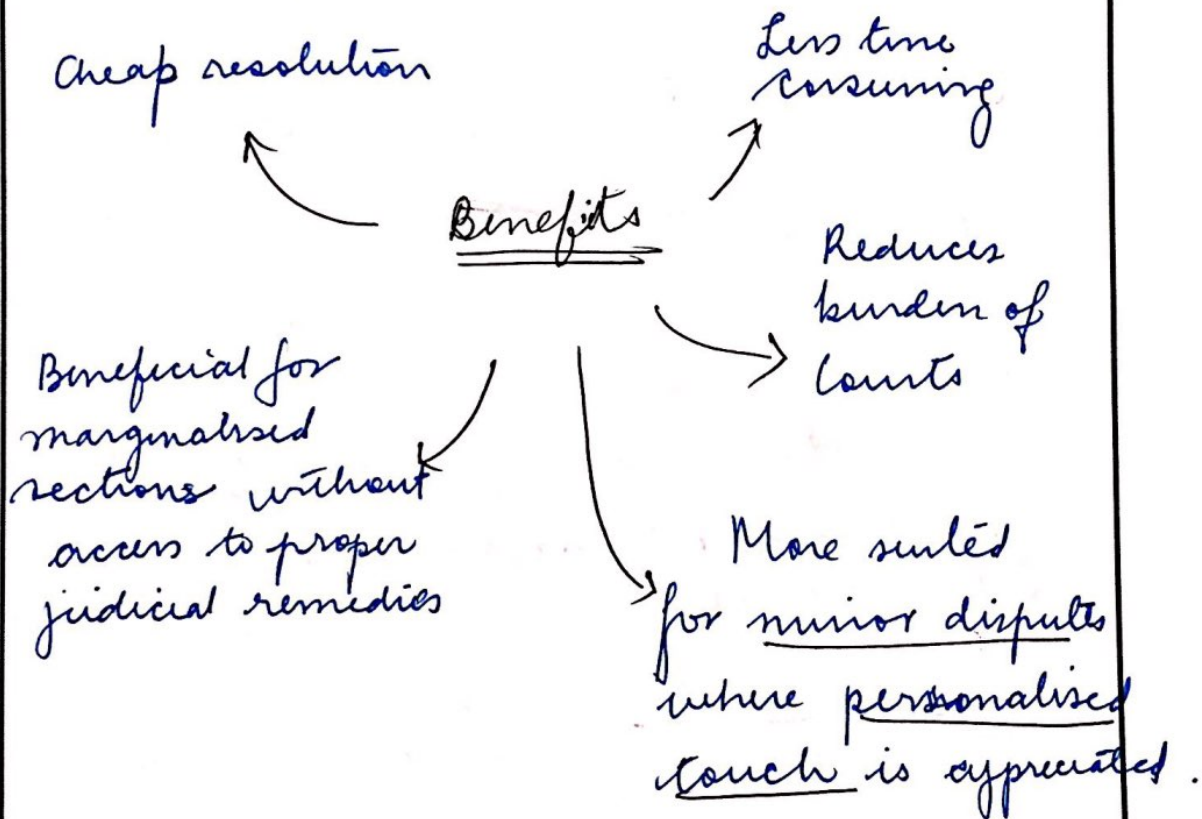 Cheap resolution
Less time
consuming
Benefits
Reduces
burden of
Courts
Beneficial for
marginalised
sections without
access to proper
judicial remedies
More suited
for minor disputes
where personalised
touch is appreciated.